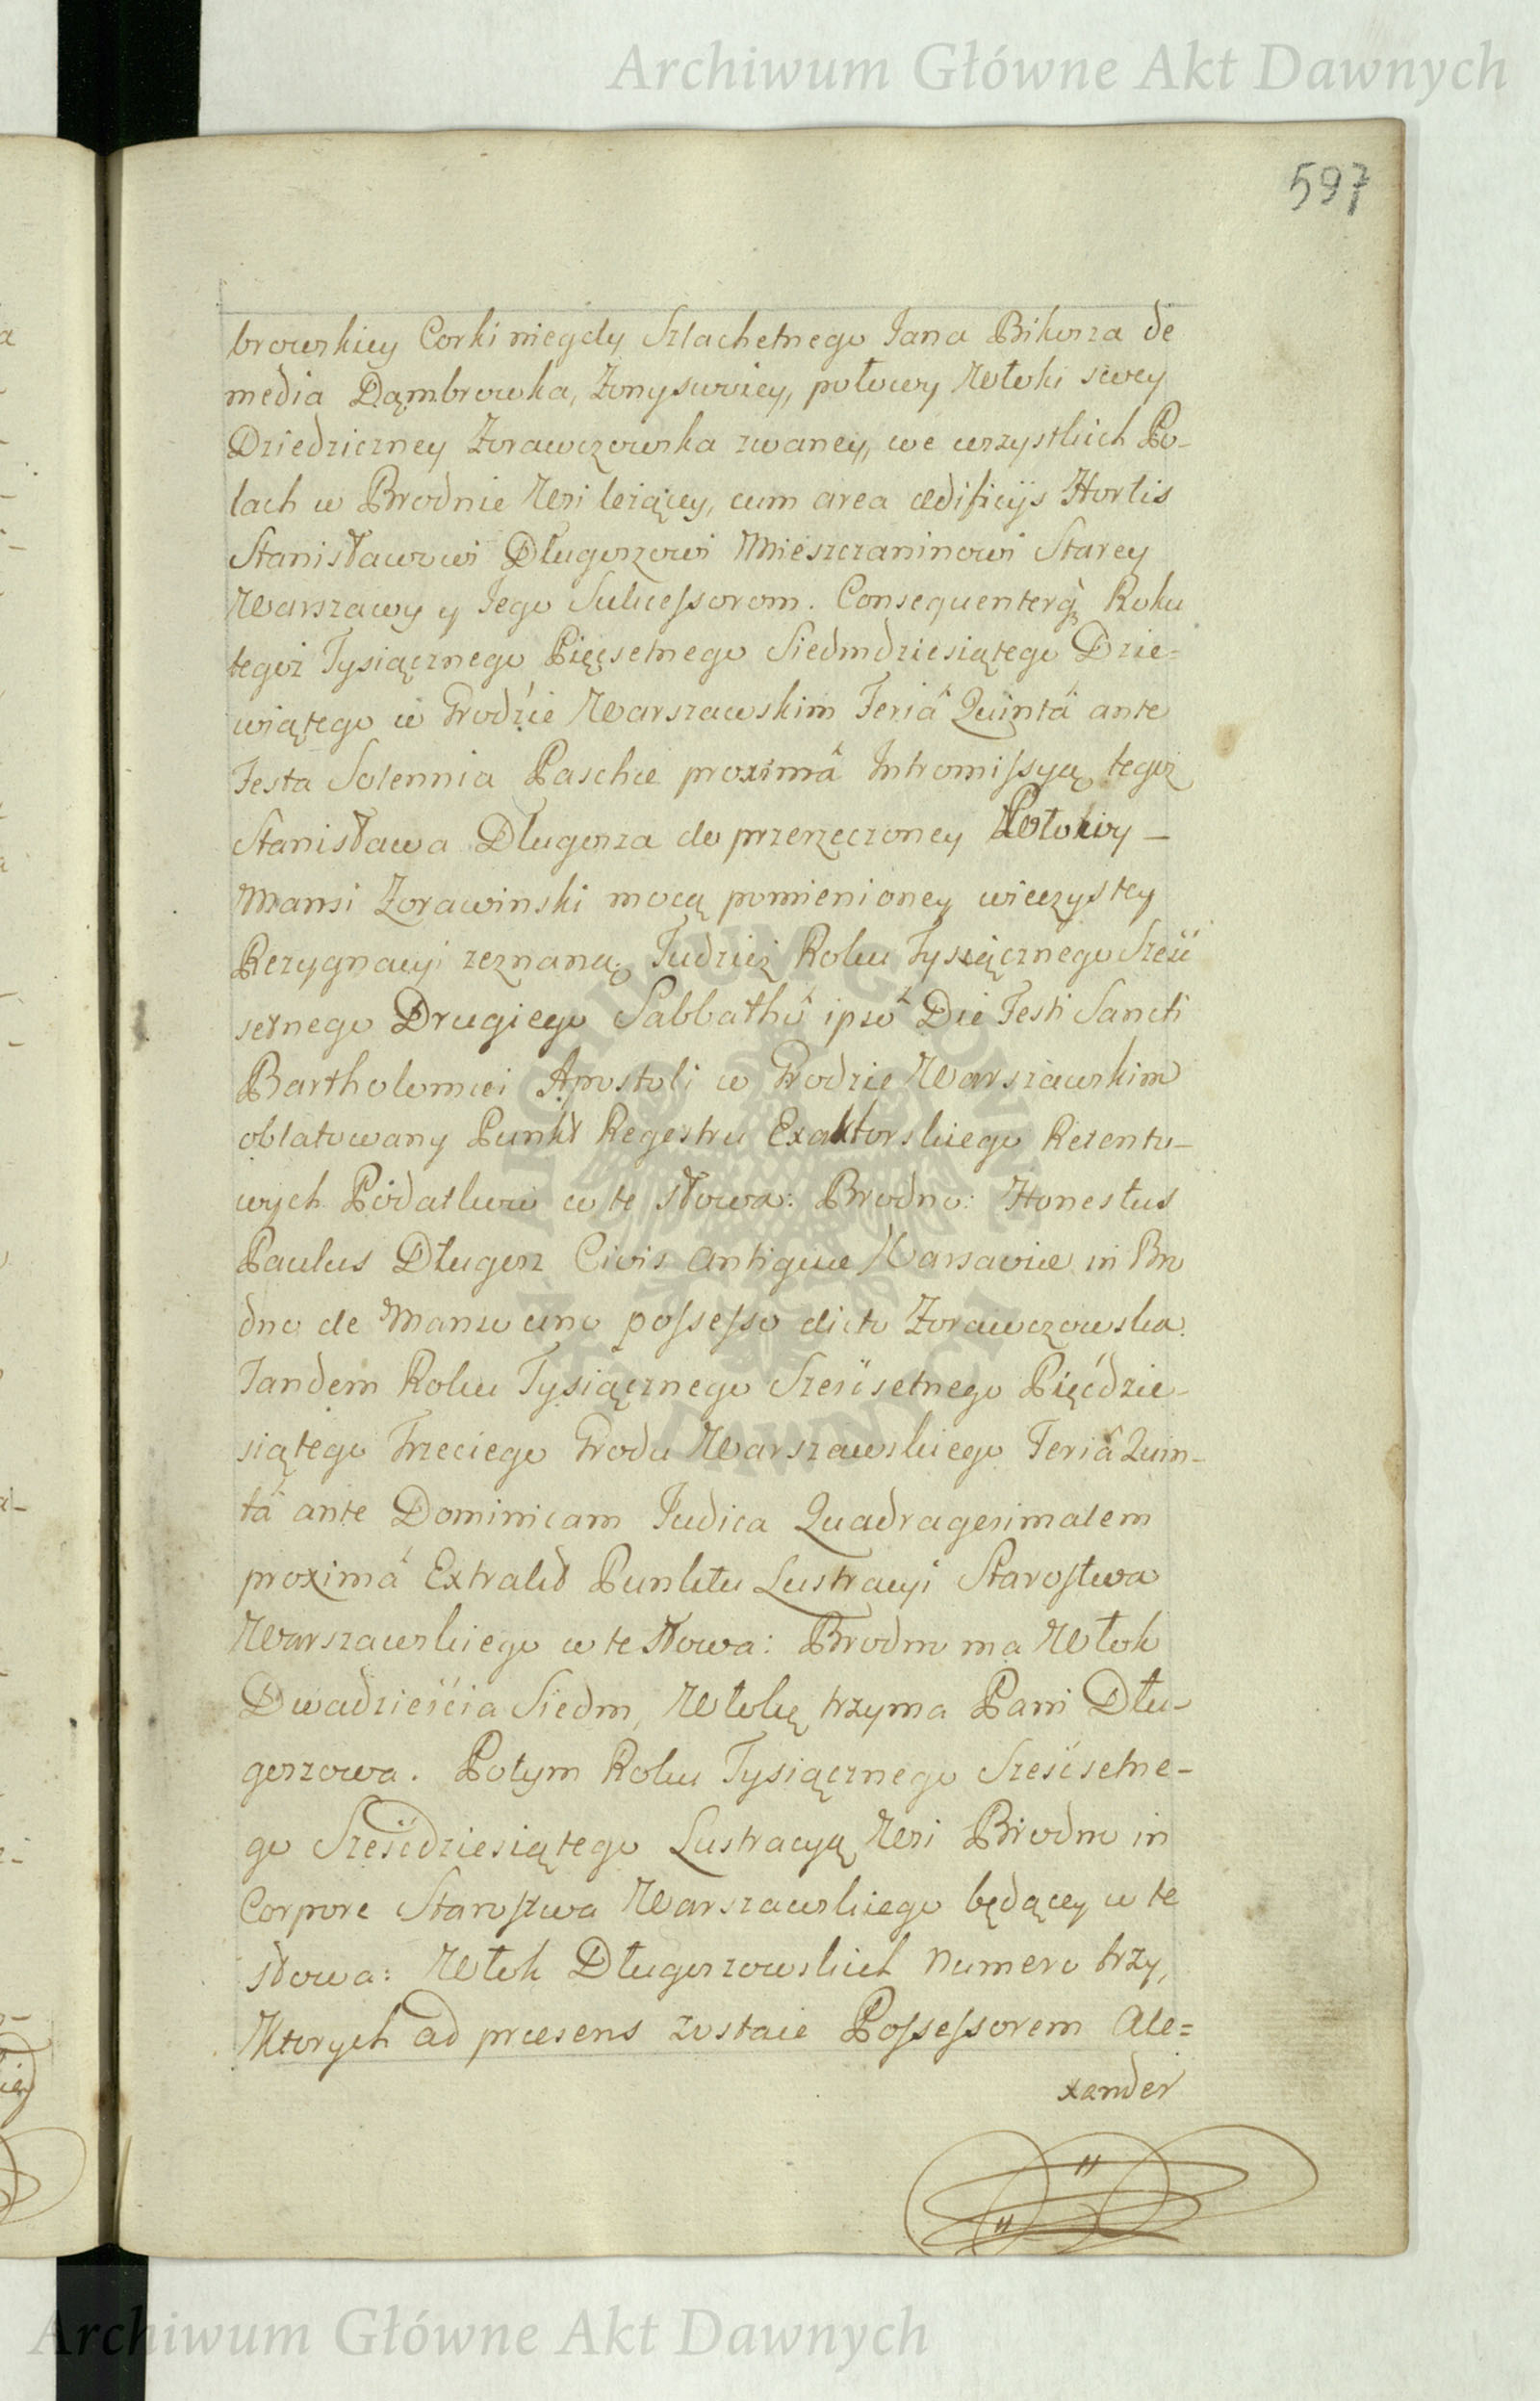 Archiwum Główne Akt Dawnych
597
browskiey Corki niegdy Szlachetnego Jana Bikosza de
media Dąmbrowka, Zony swoiey, połowy Włoki swey
Dziedziczney Zorawczowska zwaney, we wszystkich Po-
lach w Brodnie Wsi leżącey, cum area ædificijs Hortis
Stanisławowi Długoszowi Mieszczaninowi Starey
Warszawy y Jego Sukcessorom. Consequenterq; Roku
tegoż Tysiącznego Pięćsetnego Siedmdziesiątego Dzie=
wiątego w Grodzie Warszawskim Feriâ Quintâ ante
Festa Solennia Paschæ proximâ Intromissyą tegoż
Stanisława Długosza do przerzeczoney Połowy -
Mansi Zorawinski mocą pomienioney wieczystey
Rezygnacyi zeznaną. Tudzież Roku Tysiącznego Sześć
setnego Drugiego Sabbathô ipsô Die Festi Sancti
Bartholomæi Apostoli w Grodzie Warszawskim
oblatowany Punkt Regestru Exaktorskiego Retento-
wych Podatkow w te słowa: Brodno: Honestus
Paulus Długosz Civis Antiquæ Warsaviæ in Bro
dno de Manso uno possesso dicto Zorawczowska.
Tandem Roku Tysiącznego Sześćsetnego Pięćdzie-
siątego Trzeciego Grodu Warszawskiego Feriâ Quin-
tâ ante Dominicam Judica Quadragesimalem
proximâ Extrakt Punktu Lustracyi Starostwa
Warszawskiego w te słowa: Brodno ma Włok
Dwadzieścia Siedm, Włokę trzyma Pani Dłu-
goszowa. Potym Roku Tysiącznego Sześćsetne-
go Sześćdziesiątego Lustracyą Wsi Brodno in
Corpore Starostwa Warszawskiego będącey w te
słowa: Włok Długoszowskich Numero trzy,
Ktorych ad præsens zostaie Possessorem Ale=
xander
Archiwum Główne Akt Dawnych